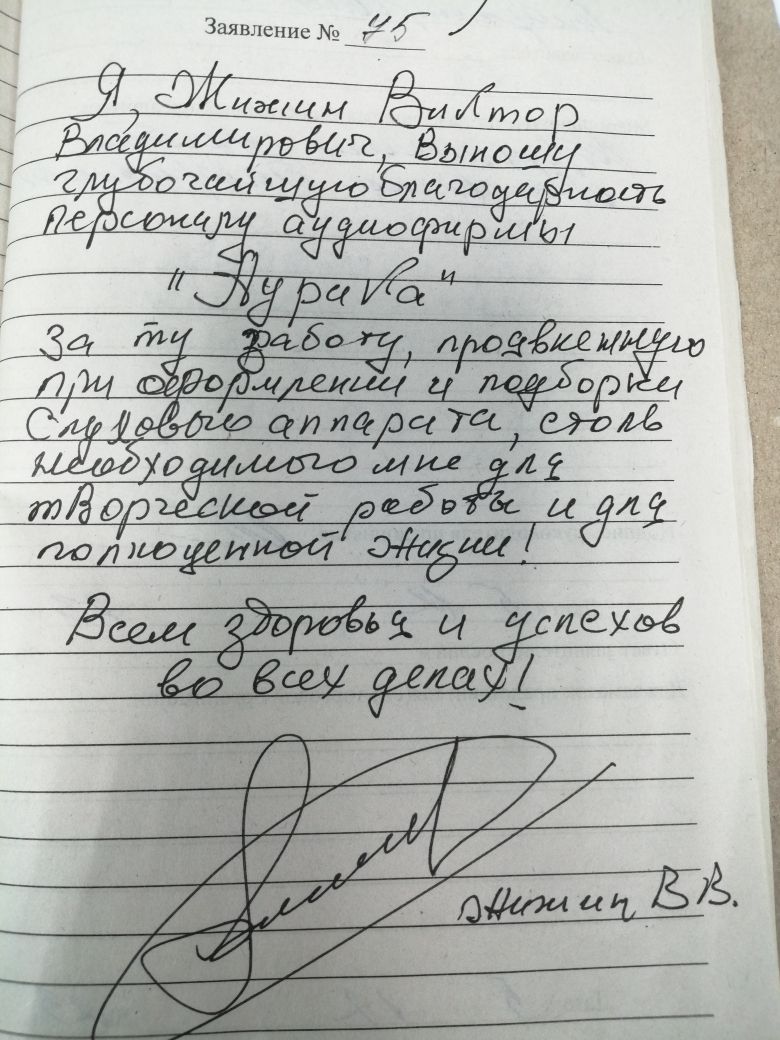 Заявление № 75
Я, Жижин Виктор
Владимирович, Выношу
глубочайшую благодарность
персоналу аудиофирмы
"Аурика"
За ту работу, проделенную
при оформлении и подборки
Слухового аппарата, столь
необходимого мне для
творческой работы и для
полноценной жизни!
Всем здоровья и успехов
во всех делах!
Жижин В В.